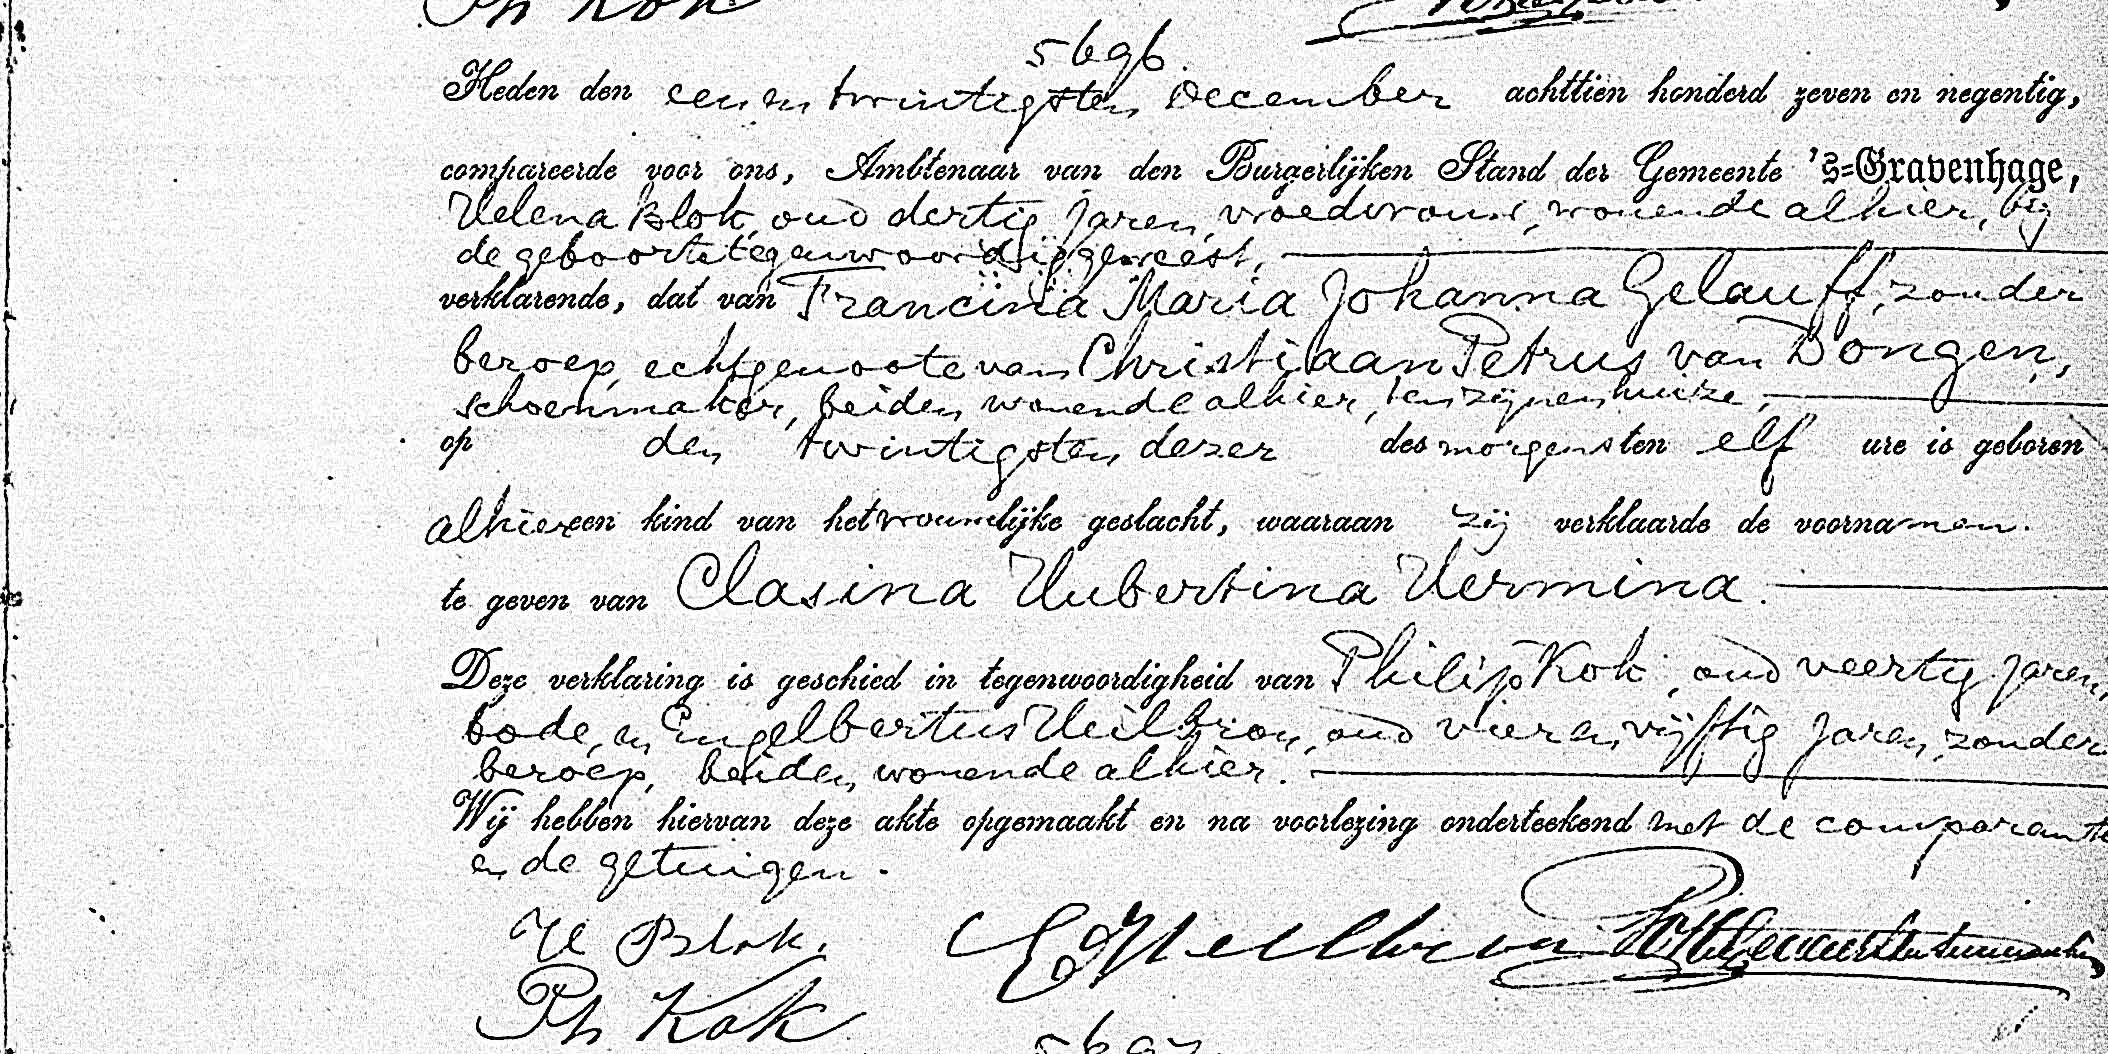 Ph Kok
5696.
Heden den een en twintigsten December achttien honderd zeven en negentig,
compareerde voor ons, Ambtenaar van den Burgerlijken Stand der Gemeente 's-Gravenhage,
Helena Blok, oud dertig jaren, vroedvrouw, wonende alhier, bij
de geboorte tegenwoordig geweest,
verklarende, dat van Francina Maria Johanna Gelauff, zonder
beroep, echtgenoote van Christiaan Petrus van Dongen,
schoenmaker, beiden wonende alhier, ten zijnen huize,
op den twintigsten dezer des morgens ten elf ure is geboren
alhier een kind van het vrouwelijke geslacht, waaraan zij verklaarde de voornamen.
te geven van Clasina Hubertina Hermina.
Deze verklaring is geschied in tegenwoordigheid van Philip Kok, oud veertig jaren,
bode, en Engelbertus Heilbron, oud vier en vijftig jaren, zonder
beroep, beiden wonende alhier.
Wij hebben hiervan deze akte opgemaakt en na voorlezing onderteekend met de comparante
en de getuigen.
H Blok. E Heilbron
Ph Kok
5697